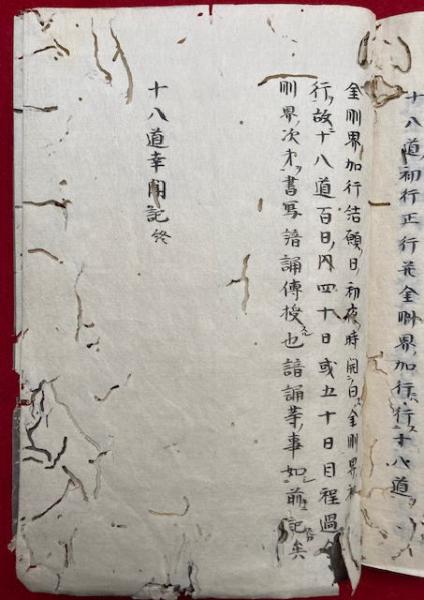 十八道初行正行并金剛界加行行十八道
金剛界加行結願日初夜時開白金剛界
行故十八道百日内四十日或五十日目程過
剛界次才書写諳誦傳授也諳誦等事如前記矣
十八道幸聞記終